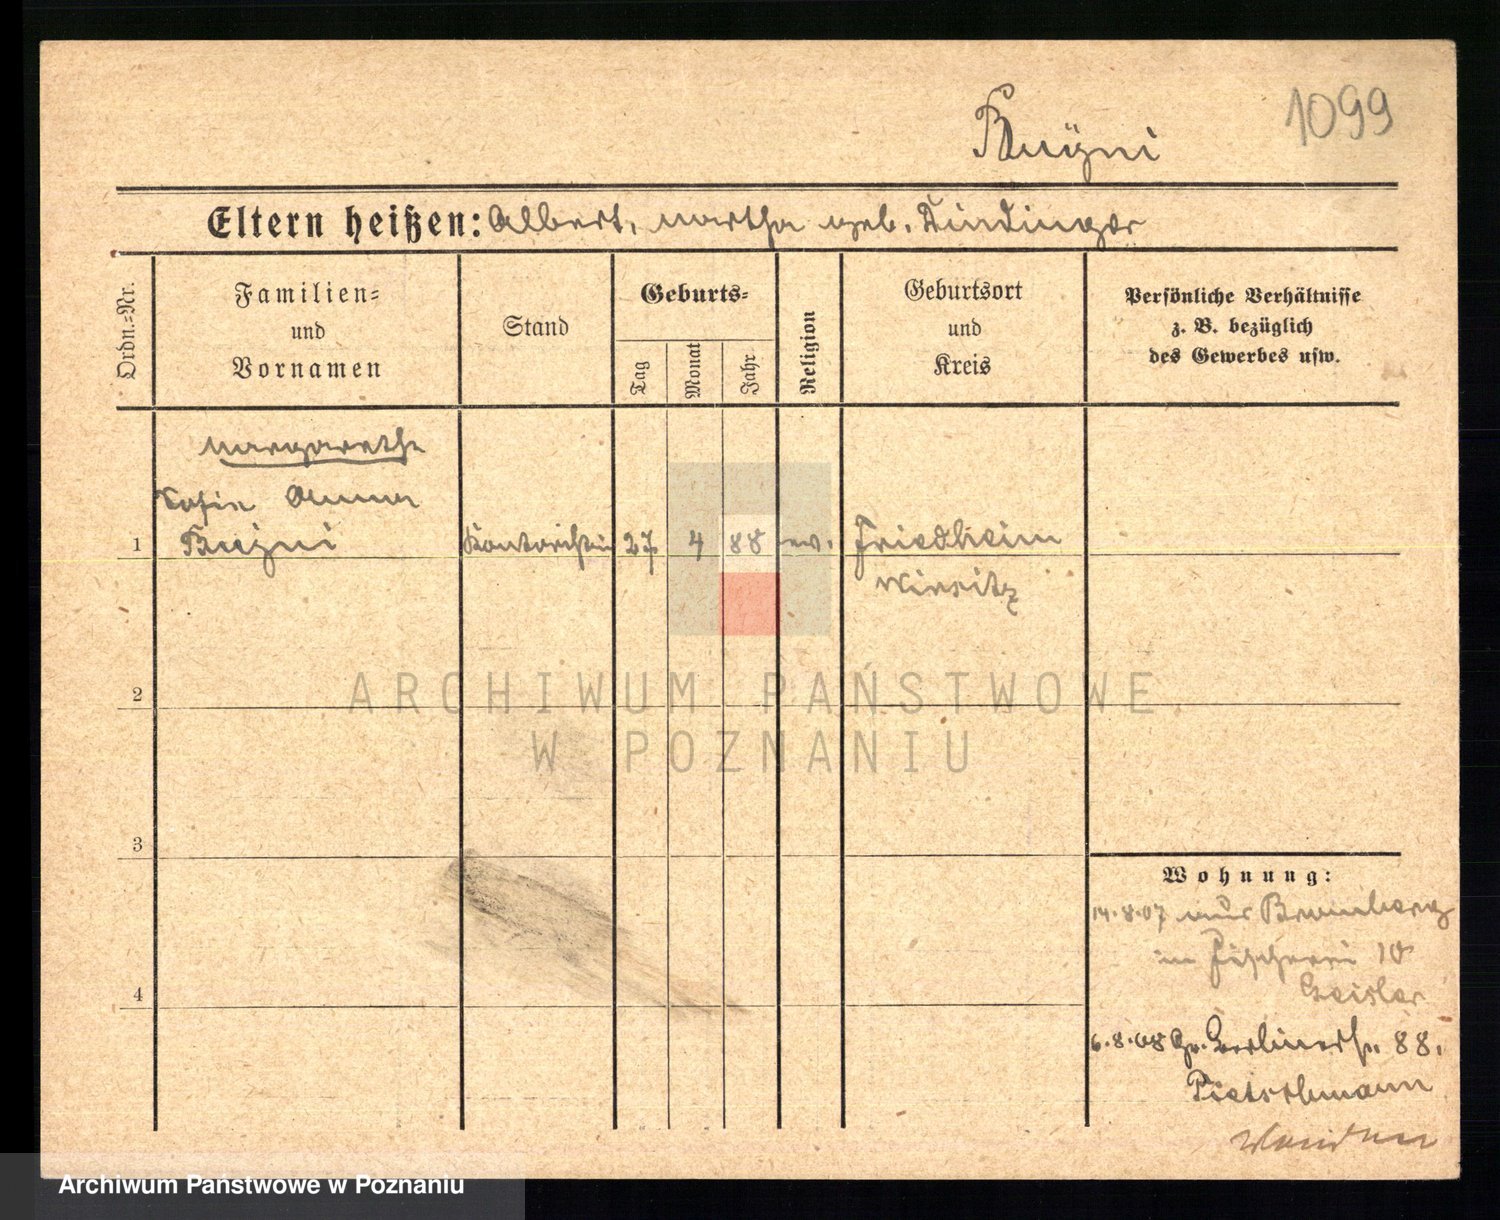 1099
Eltern heißen: Albert, Martha geb. Kindinger
Ordn.-Nr.
Familien-
und
Vornamen
Stand
Geburts-
Tag
Monat
Jahr
Religion
Geburtsort
und
Kreis
Persönliche Verhältnisse
z. B. bezüglich
des Gewerbes usw.
Margarethe
Sofie Anna
1
Kontoristin
27
4
88
ev.
Friedheim
Wirsitz
2
3
4
Wohnung:
14.8.07 aus Bromberg
in Fischerei 10
Geisler
6.8.08 Gr. Berlinerstr. 88.
Pietschmann
ARCHIWUM PAŃSTWOWE
W POZNANIU
Archiwum Państwowe w Poznaniu